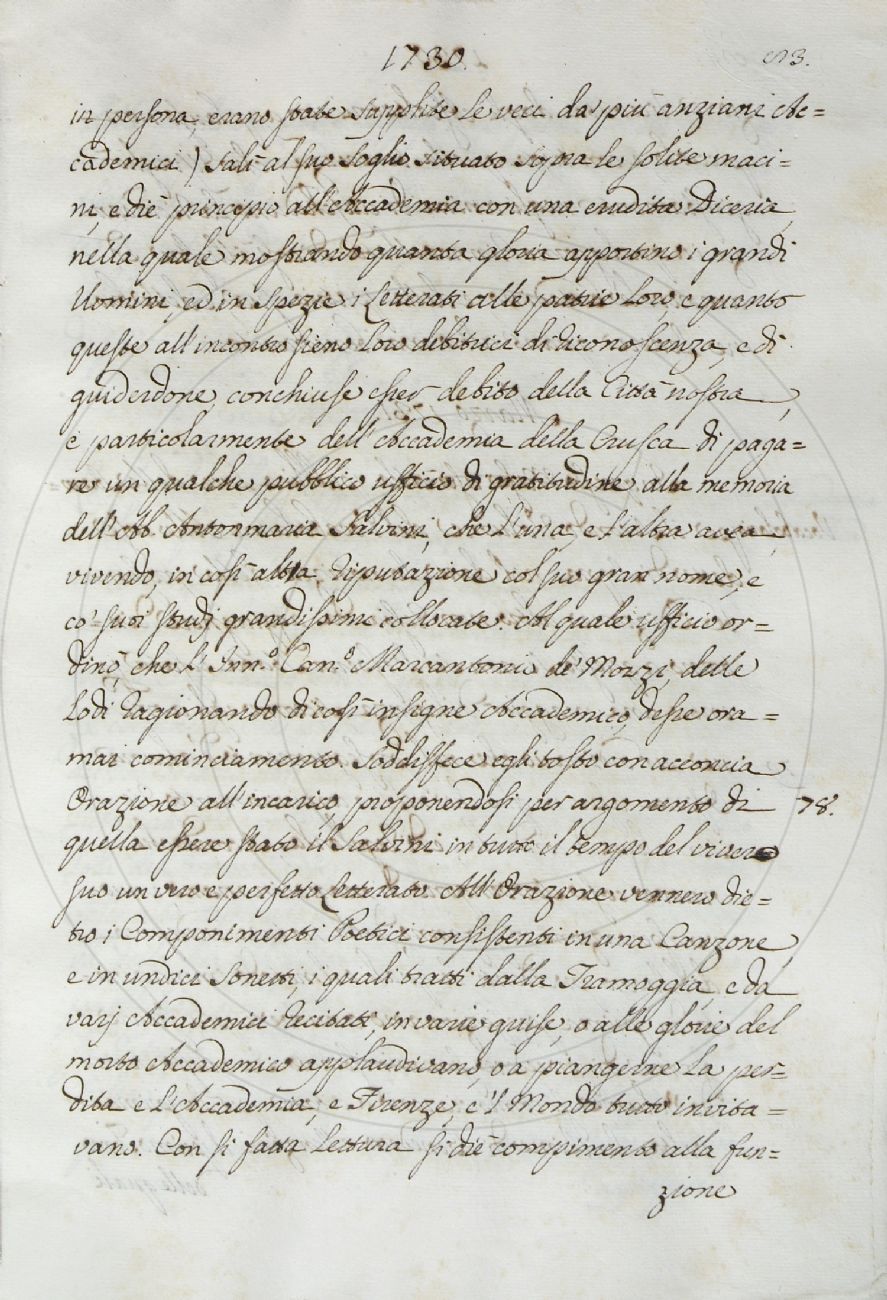 1730.
93.
in persona, erano state supplite le veci da' più anziani Ac=
cademici) salì al suo soglio situato sopra le solite maci-
ni, e diè principio all'Accademia con una erudita Diceria,
nella quale mostrando quanta gloria apportino i grandi
Uomini, ed in spezie i Letterati alle patrie loro, e quanto
queste all'incontro sieno loro debitrici di riconoscenza, e di
guiderdone, conchiuse esser debito della Città nostra,
e particolarmente dell'Accademia della Crusca di paga=
re un qualche pubblico ufficio di gratitudine alla memoria
dell'Ab. Antonmaria Salvini, che l'una, e l'altra avea,
vivendo, in così alta riputazione col suo gran nome, e
co' suoi studj grandissimi collocate. Al quale ufficio or=
dinò, che l'Inn.º Can.º Marcantonio de' Mozzi, delle
lodi ragionando di così insigne Accademico, desse ora=
mai cominciamento. Soddisfece egli tosto con acconcia
Orazione all'incarico, proponendosi per argomento di
78.
quella essere stato il Salvini in tutto il tempo del viver
suo un vero e perfetto Letterato. All'Orazione vennero die=
tro i Componimenti Poetici consistenti in una Canzone,
e in undici Sonetti, i quali tratti dalla Tramoggia, e da
varj Accademici recitati, in varie guise, o alle glorie del
morto Accademico applaudivano, o a piangerne la per=
dita e l'Accademia, e Firenze, e 'l Mondo tutto invita=
vano. Con sì fatta lettura si diè compimento alla fun=
zione